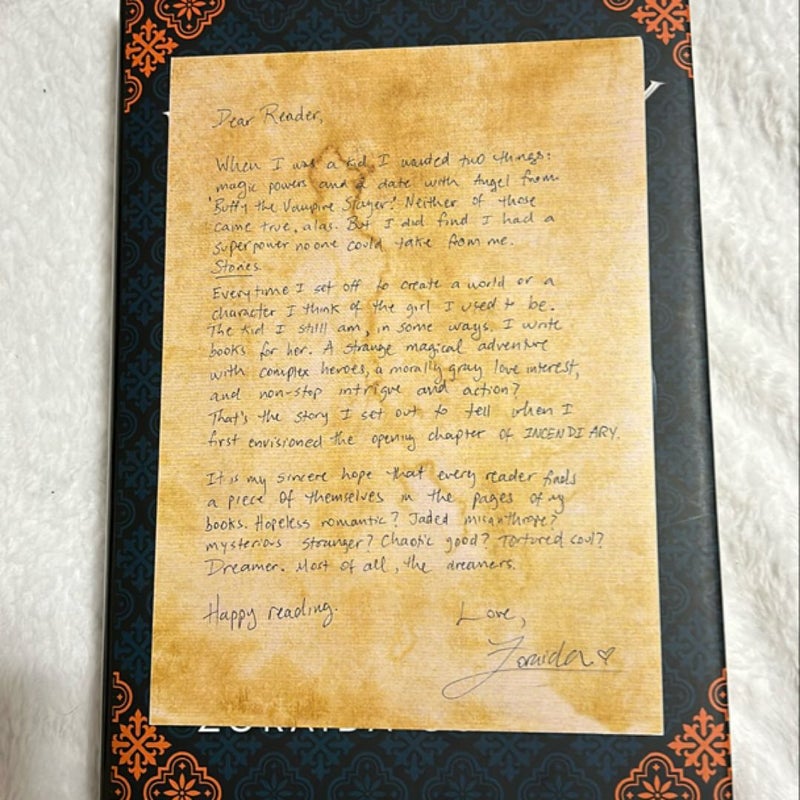 Dear Reader,
When I was a kid I wanted two things:
magic powers and a date with Angel from
'Buffy the Vampire Slayer.' Neither of those
came true, alas. But I did find I had a
superpower no one could take from me.
Stories.
Everytime I set off to create a world or a
character I think of the girl I used to be.
The kid I still am, in some ways. I write
books for her. A strange magical adventure
with complex heroes, a morally gray love interest,
and non-stop intrigue and action?
That's the story I set out to tell when I
first envisioned the opening chapter of INCENDIARY.
It is my sincere hope that every reader finds
a piece of themselves in the pages of my
books. Hopeless romantic? Jaded misanthrope?
mysterious stranger? Chaotic good? Tortured soul?
Dreamer. Most of all, the dreamers.
Happy reading.
Love,
Zoraida
Y
ZORAIDA